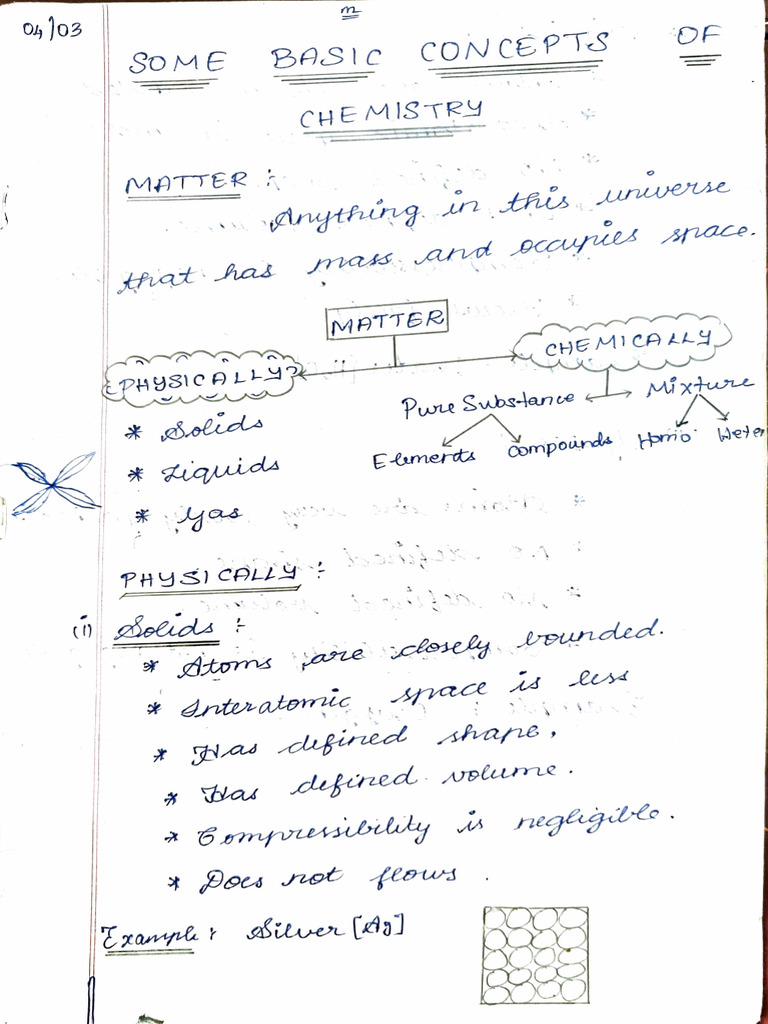 04/03
m
SOME BASIC CONCEPTS OF
CHEMISTRY
MATTER :-
Anything in this universe
that has mass and occupies space.
MATTER
PHYSICALLY
CHEMICALLY
Pure Substance
Mixture
Elements
Compounds
Homo
Heter
* Solids
* Liquids
* Gas
PHYSICALLY :-
(i) Solids :-
* Atoms are closely bounded.
* Interatomic space is less
* Has defined shape.
* Has defined volume.
* Compressibility is negligible.
* Does not flows.
Example : Silver [Ag]